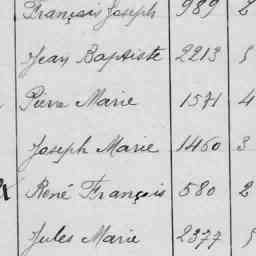 François Joseph 989
Jean Baptiste 2213
Pierre Marie 1571 4
Joseph Marie 1460 3
René François 580 2
Jules Marie 2377